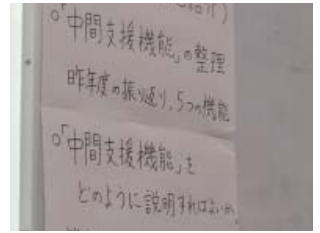 ○「中間支援機能」の整理
昨年度の振り返り、5つの機能
○「中間支援機能」を
どのように説明すればよいか